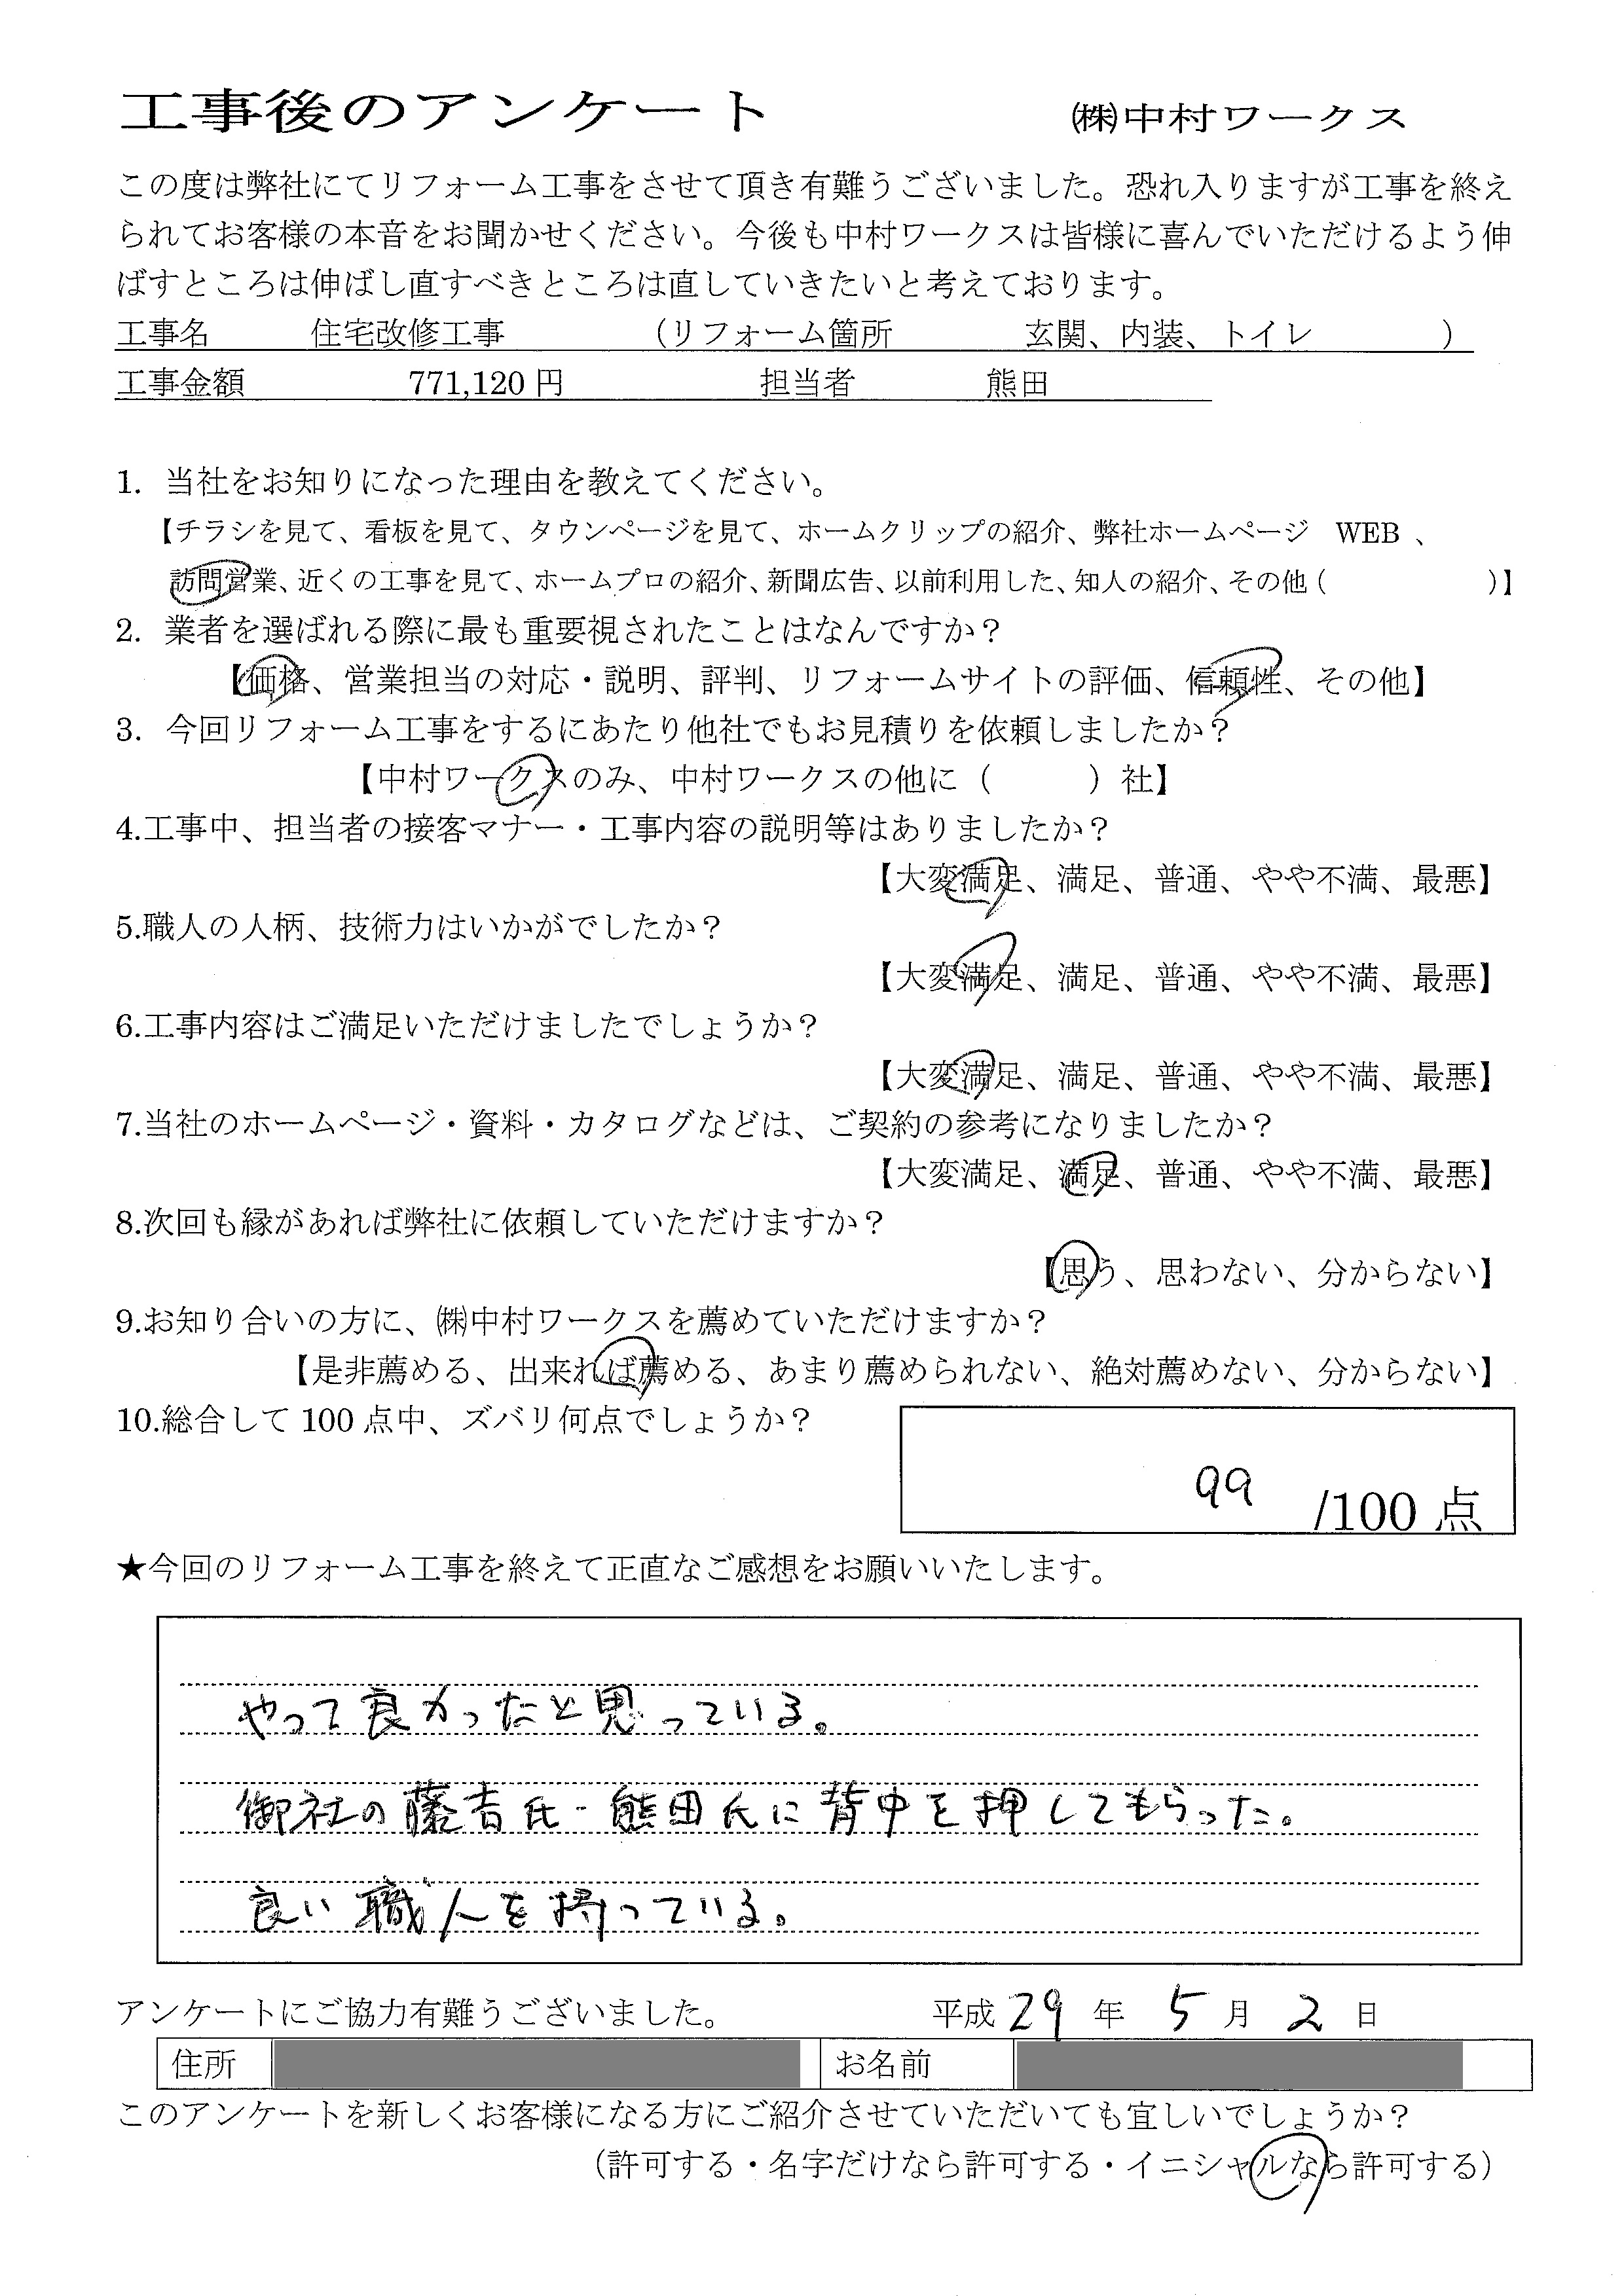 工事後のアンケート ㈱中村ワークス
この度は弊社にてリフォーム工事をさせて頂き有難うございました。恐れ入りますが工事を終え
られてお客様の本音をお聞かせください。今後も中村ワークスは皆様に喜んでいただけるよう伸
ばすところは伸ばし直すべきところは直していきたいと考えております。
工事名 住宅改修工事 （リフォーム箇所 玄関、内装、トイレ ）
工事金額 771,120 円 担当者 熊田
1. 当社をお知りになった理由を教えてください。
【チラシを見て、看板を見て、タウンページを見て、ホームクリップの紹介、弊社ホームページ WEB 、
訪問営業、近くの工事を見て、ホームプロの紹介、新聞広告、以前利用した、知人の紹介、その他（ ）】
2. 業者を選ばれる際に最も重要視されたことはなんですか？
【価格、営業担当の対応・説明、評判、リフォームサイトの評価、信頼性、その他】
3. 今回リフォーム工事をするにあたり他社でもお見積りを依頼しましたか？
【中村ワークスのみ、中村ワークスの他に（ ）社】
4.工事中、担当者の接客マナー・工事内容の説明等はありましたか？
【大変満足、満足、普通、やや不満、最悪】
5.職人の人柄、技術力はいかがでしたか？
【大変満足、満足、普通、やや不満、最悪】
6.工事内容はご満足いただけましたでしょうか？
【大変満足、満足、普通、やや不満、最悪】
7.当社のホームページ・資料・カタログなどは、ご契約の参考になりましたか？
【大変満足、満足、普通、やや不満、最悪】
8.次回も縁があれば弊社に依頼していただけますか？
【思う、思わない、分からない】
9.お知り合いの方に、㈱中村ワークスを薦めていただけますか？
【是非薦める、出来れば薦める、あまり薦められない、絶対薦めない、分からない】
10.総合して 100 点中、ズバリ何点でしょうか？
99 /100 点
★今回のリフォーム工事を終えて正直なご感想をお願いいたします。
やって良かったと思っている。
御社の藤吉氏・熊田氏に背中を押してもらった。
良い職人を持っている。
アンケートにご協力有難うございました。 平成 29 年 5 月 2 日
住所 お名前
このアンケートを新しくお客様になる方にご紹介させていただいても宜しいでしょうか？
（許可する・名字だけなら許可する・イニシャルなら許可する）